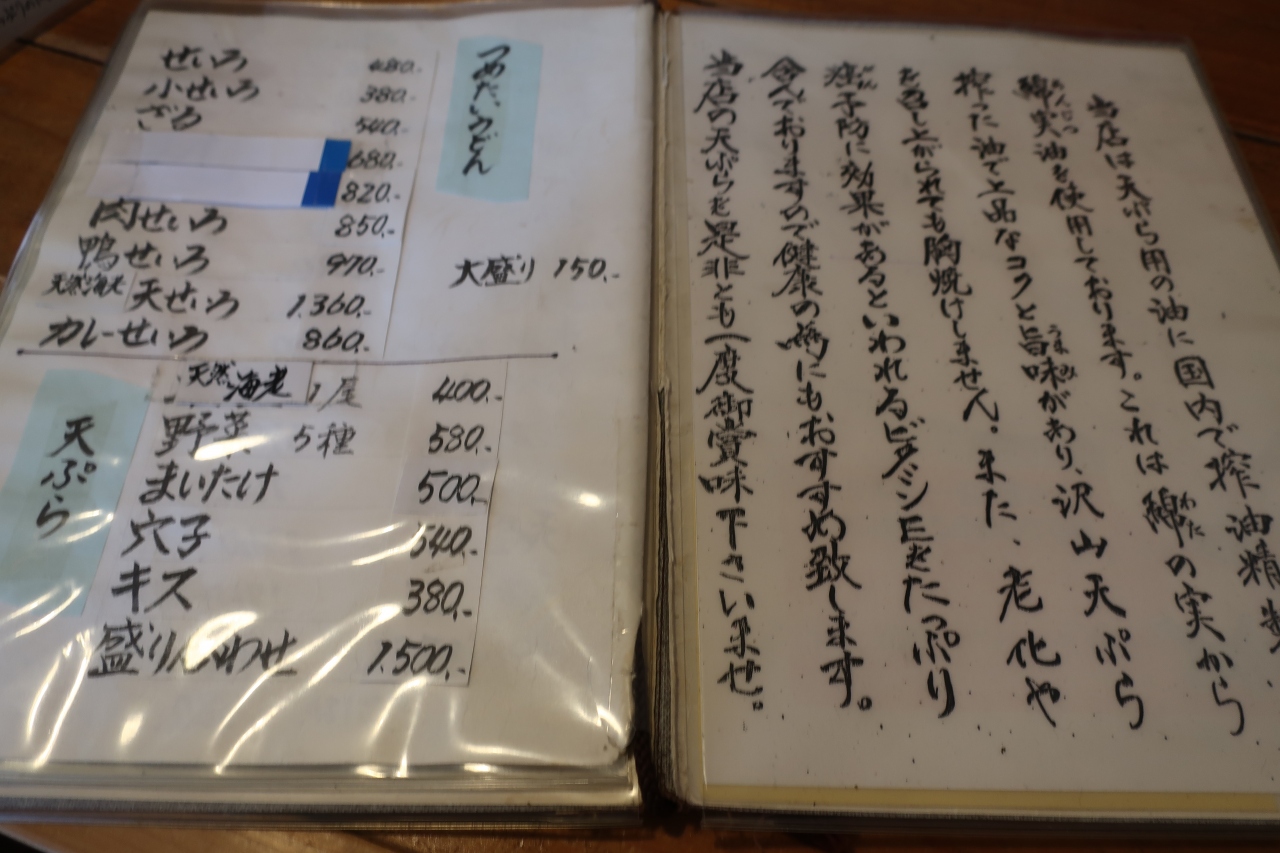 つめたいうどん
せいろ 480.-
小せいろ 380.-
ざる 540.-
680.-
820.-
肉せいろ 850.-
鴨せいろ 970.-
天然海老 天せいろ 1.360.-
カレーせいろ 860.-
大盛り 150.-
天ぷら
天然海老 1尾 400.-
野菜 5種 580.-
まいたけ 500.-
穴子 540.-
キス 380.-
盛り合わせ 1.500.-
当店は天ぷら用の油に国内で搾油精製
綿実油を使用しております。これは綿の実から
めんじつ
わた
搾った油で上品なコクと旨味があり、沢山天ぷら
うまみ
を召し上がられても胸焼けしません。また、老化や
癌予防に効果があるといわれるビタミンEをたっぷり
がん
含んでおりますので健康の為にもおすすめ致します。
当店の天ぷらを是非とも一度御賞味下さいませ。